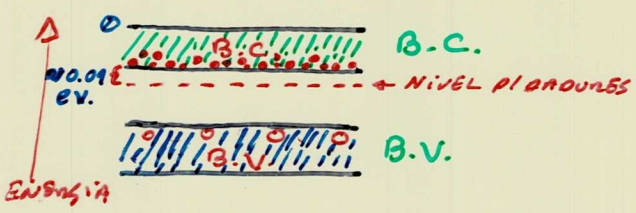 B.C.
B.C.
≈0.01
eV.
NIVEL P/ DADORES
B.V.
B.V.
ENERGIA